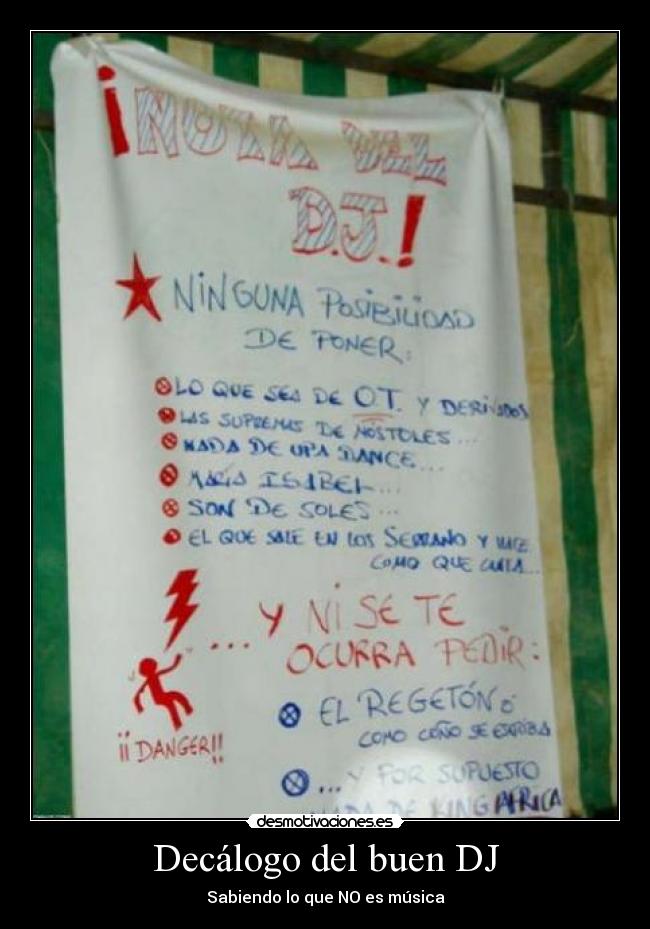 ¡NOTA DEL
D.J.!
NINGUNA POSIBILIDAD
DE PONER:
LO QUE SEA DE O.T. Y DERIVADOS
LAS SUPREMAS DE MÓSTOLES...
NADA DE UPA DANCE...
MARÍA ISABEL...
SON DE SOLES...
EL QUE SALE EN LOS SERRANO Y HACE
COMO QUE CANTA...
... Y NI SE TE
OCURRA PEDIR:
¡¡DANGER!!
EL REGETÓN Ó
COMO COÑO SE ESCRIBA
... Y POR SUPUESTO
NADA DE KING AFRICA
desmotivaciones.es
Decálogo del buen DJ
Sabiendo lo que NO es música